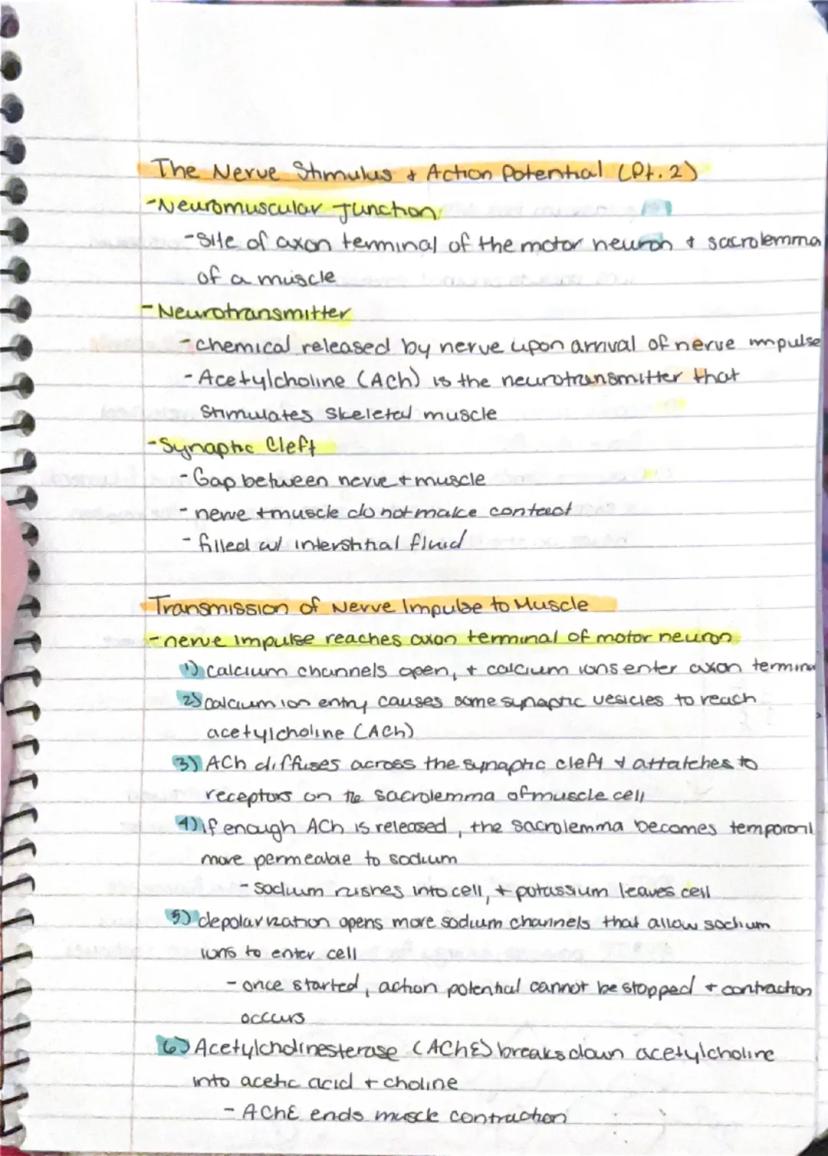 The Nerve Stimulus + Action Potential (Pt. 2)
- Neuromuscular Junction
- site of axon terminal of the motor neuron + sacrolemma
of a muscle
- Neurotransmitter
- chemical released by nerve upon arrival of nerve impulse
- Acetylcholine (ACh) is the neurotransmitter that
stimulates skeletal muscle
- Synaptic Cleft
- Gap between nerve + muscle
- nerve + muscle do not make contact
- filled w/ interstitial fluid
Transmission of Nerve Impulse to Muscle
- nerve impulse reaches axon terminal of motor neuron
1) calcium channels open, + calcium ions enter axon termina
2) calcium ion entry causes some synaptic vesicles to reach
acetylcholine (ACh)
3) ACh diffuses across the synaptic cleft + attatches to
receptors on the sacrolemma of muscle cell
4) if enough ACh is released, the sacrolemma becomes temporaril
more permeable to sodium
- sodium rushes into cell, + potassium leaves cell
5) depolarization opens more sodium channels that allow sodium
ions to enter cell
- once started, action potential cannot be stopped + contraction
occurs
6) Acetylcholinesterase (AChE) breaks down acetylcholine
into acetic acid + choline
- AChE ends muscle contraction